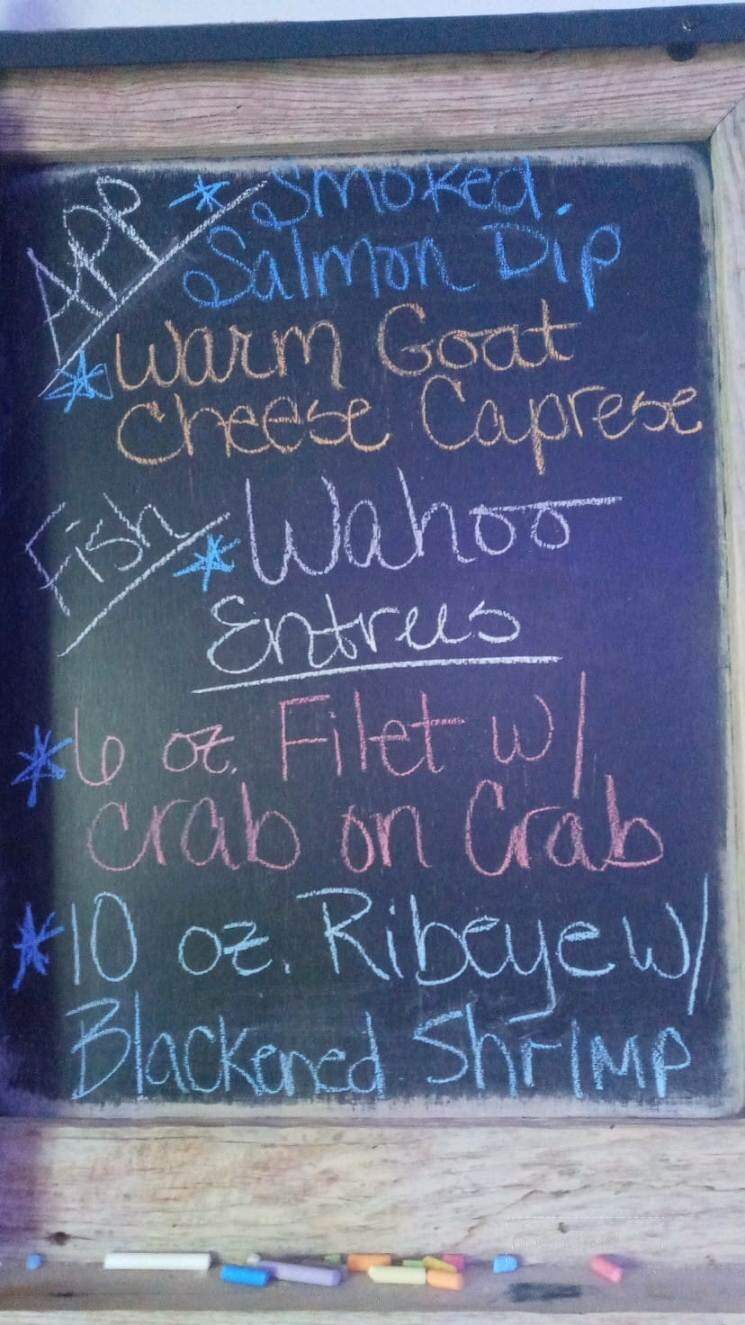 APP * Smoked
Salmon Dip
* Warm Goat
Cheese Caprese
Fish * Wahoo
Entrees
* 6 oz. Filet w/
Crab on Crab
* 10 oz. Ribeye w/
Blackened Shrimp